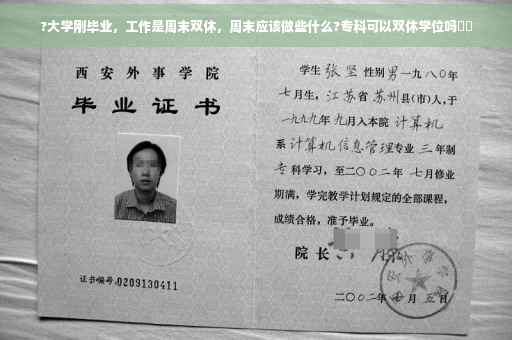 ?大学刚毕业，工作是周末双休，周末应该做些什么?专科可以双休学位吗
西安外事学院
毕业证书
证书编号:0209130411
学生张坚性别男一九八〇年
七月生，江苏省苏州县(市)人，于
一九九九年九月入本院计算机
系计算机信息管理专业三年制
专科学习，至二〇〇二年七月修业
期满，学完教学计划规定的全部课程，
成绩合格，准予毕业。
院长
二〇〇二年 月五日